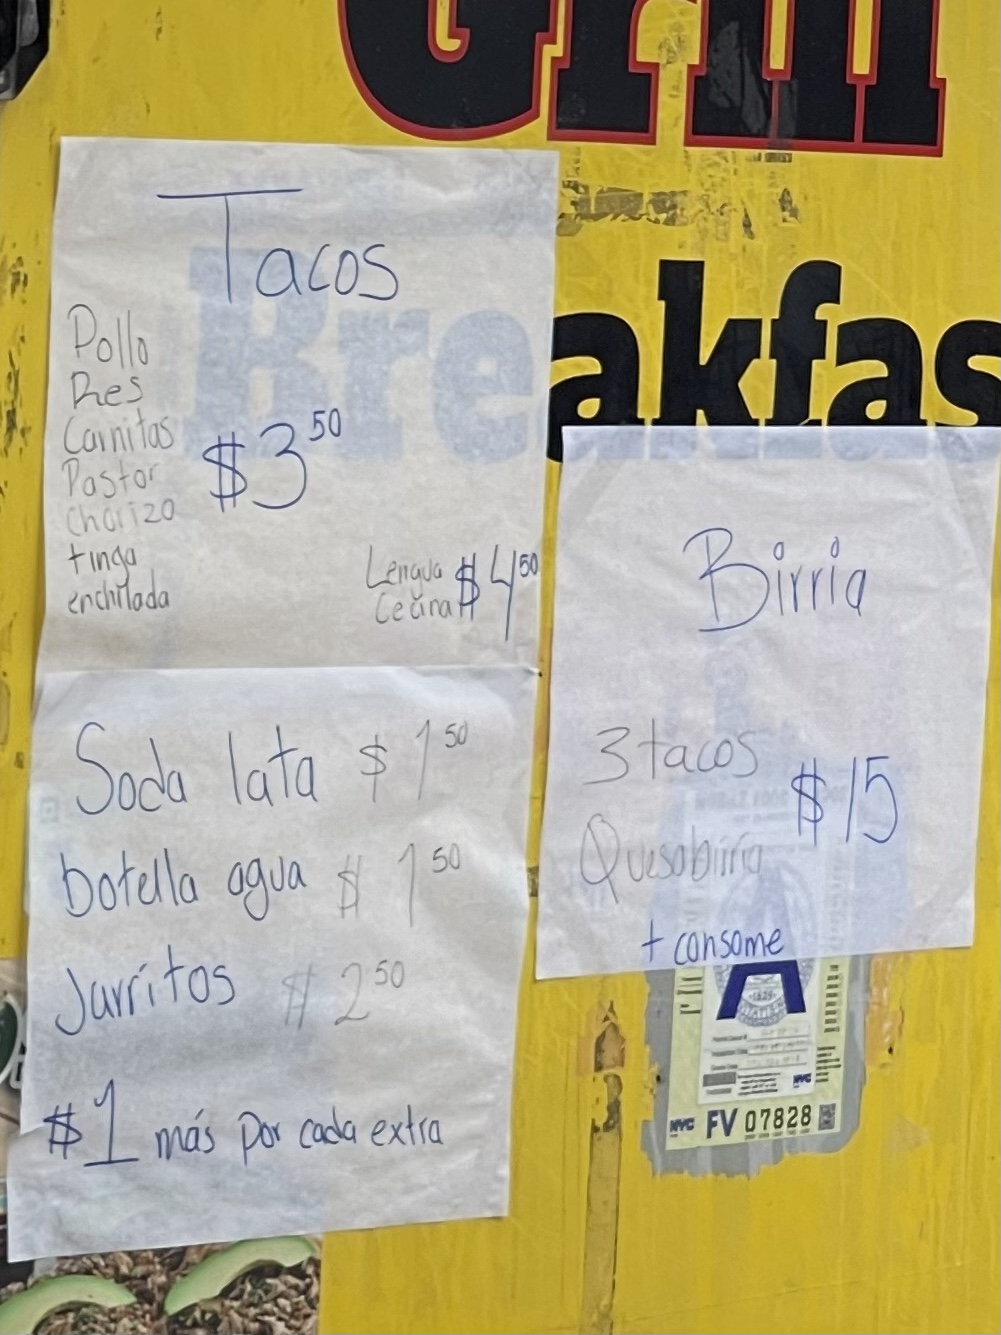 Grill
Tacos
Pollo
Res
Carnitas
Pastor
Chorizo
tinga
enchilada
$3 50
Lengua
Cecina
$4 50
Breakfas
Soda lata $1 50
botella agua $1 50
Jarritos $2 50
$1 más por cada extra
Birria
3 tacos
Quesabirria
$15
+ consome
A
NYC FV 07828
NYC